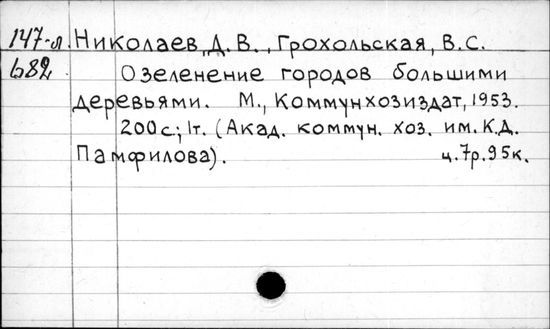 147-л Николаев, Д. В., Грохольская, В.С.
682 Озеленение городов большими
деревьями. М., Коммунхозиздат, 1953.
200с; 1т. (Акад. коммун. хоз. им. К.Д.
Памфилова). ц. 7р. 95к.